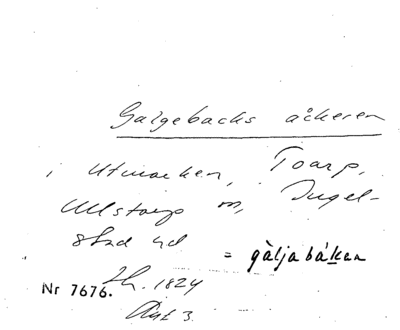 Galgebacks åkeren
i Utmarken, Toarp,
Ullstorp sn, Ingel-
stad hd
= gàljabáken
Lh. 1824
Nr 7676.
Akt 3.